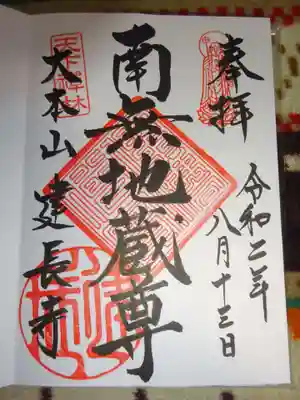 奉拝
令和二年
八月十三日
南無地蔵尊
大本山建長寺
天下禅林